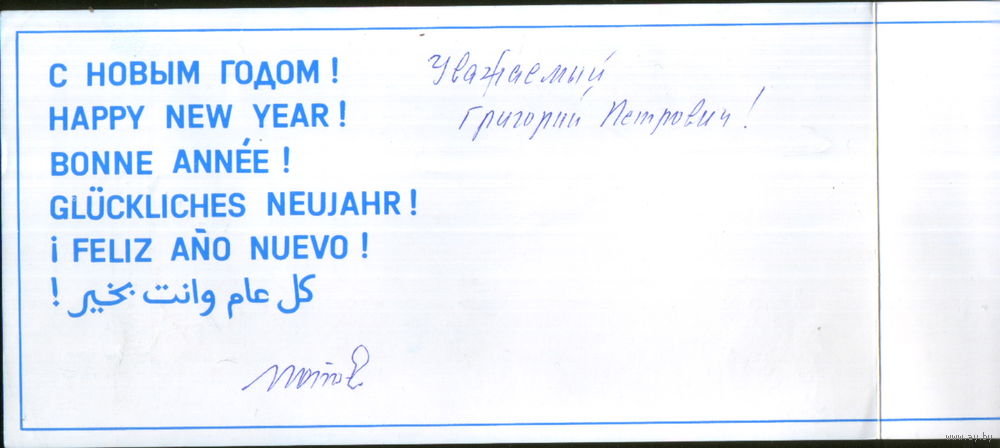 С НОВЫМ ГОДОМ !
HAPPY NEW YEAR !
BONNE ANNÉE !
GLÜCKLICHES NEUJAHR !
¡ FELIZ AÑO NUEVO !
كل عام وانت بخير !
Уважаемый
Григорий Петрович !
www.ay.by